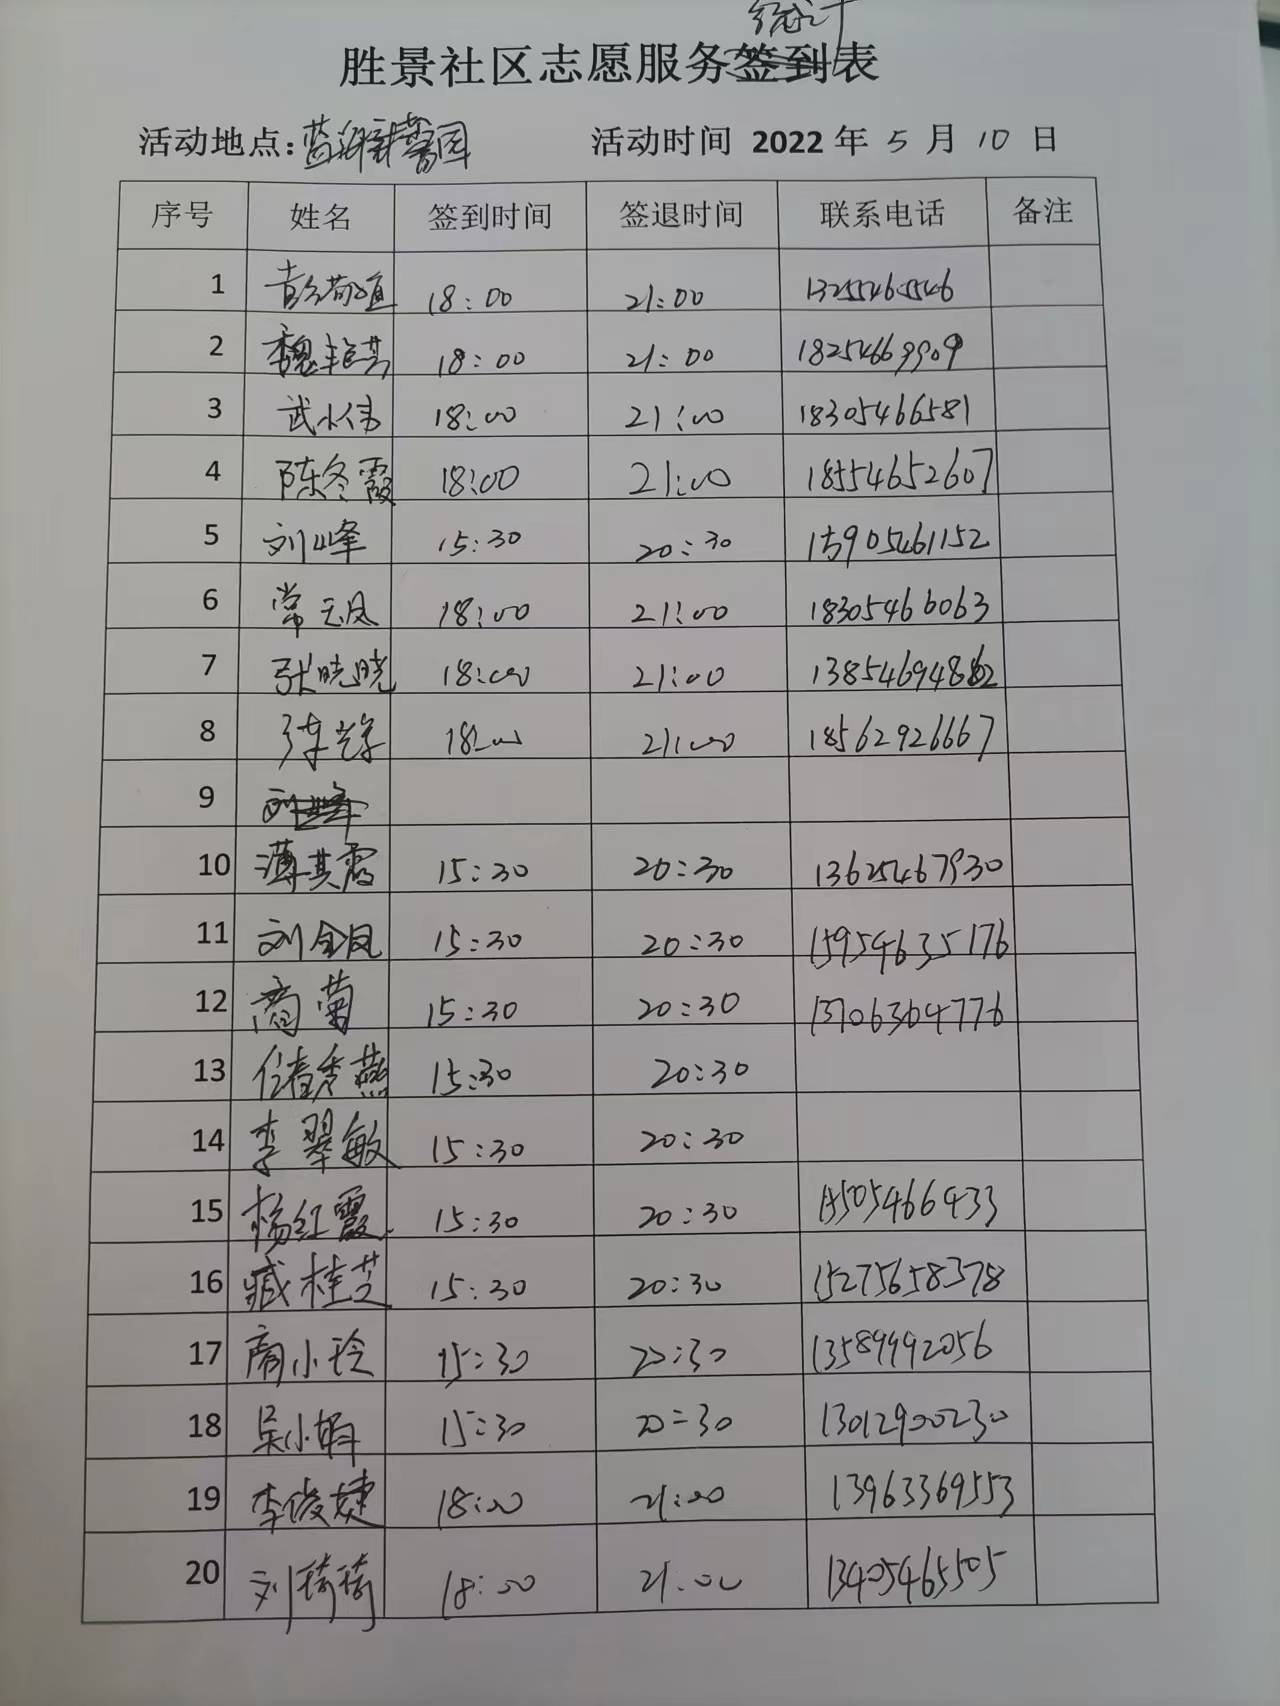 统计
胜景社区志愿服务签到表
活动地点: 蓝海新馨园 活动时间 2022 年 5 月 10 日
序号 姓名 签到时间 签退时间 联系电话 备注
1 18:00 21:00 13255465546
2 魏艳芸 18:00 21:00 18254669909
3 武小伟 18:00 21:00 18305466581
4 陈冬霞 18:00 21:00 18554652607
5 刘峰 15:30 20:30 15905461152
6 常云凤 18:00 21:00 18305466063
7 张晓晓 18:00 21:00
8 18:00 21:00 18562926667
9 刘峰
10 薄其霞 15:30 20:30 13625467930
11 刘金凤 15:30 20:30 15954635176
12 商菊 15:30 20:30 13706364776
13 任春燕 15:30 20:30
14 李翠敏 15:30 20:30
15 杨红霞 15:30 20:30 15505466433
16 臧桂芝 15:30 20:30 15275658378
17 周小玲 15:30 20:30 13589992056
18 吴小娟 15:30 20:30 13012900230
19 李俊婕 18:00 21:00 13963369553
20 刘琦琦 18:00 21:00 13405465505